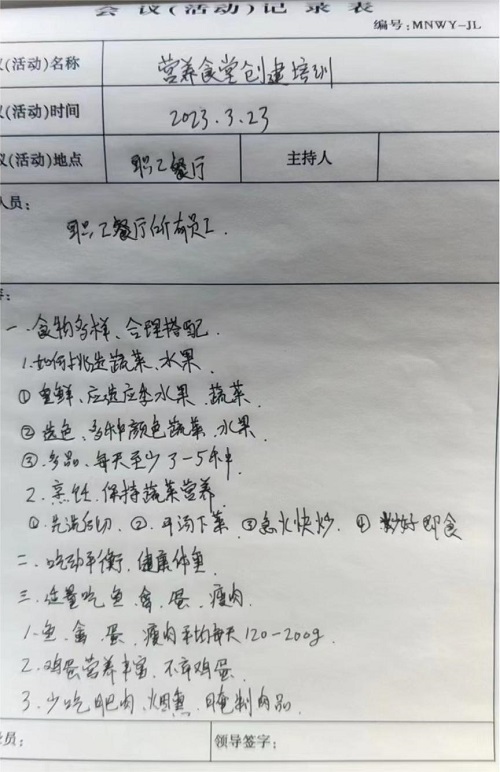 会议(活动)记录表
编号:MNWY-JL
议(活动)名称 营养食堂创建培训
议(活动)时间 2023.3.23
议(活动)地点 职工餐厅 主持人
人员:
职工餐厅所有员工.
容:
一.食物多样、合理搭配.
1.如何挑选蔬菜、水果.
①重鲜、应选应季水果、蔬菜.
②选色、多种颜色蔬菜、水果.
③多品、每天至少3-5种.
2.烹饪.保持蔬菜营养.
①.先洗后切、②.开汤下菜 ③急火快炒. ④炒好即食
二.吃动平衡、健康体重
三.适量吃鱼、禽、蛋、瘦肉.
1.鱼、禽、蛋、瘦肉平均每天120-200g.
2.鸡蛋营养丰富、不弃鸡蛋.
3.少吃肥肉、烟熏、腌制肉品.
员: 领导签字: